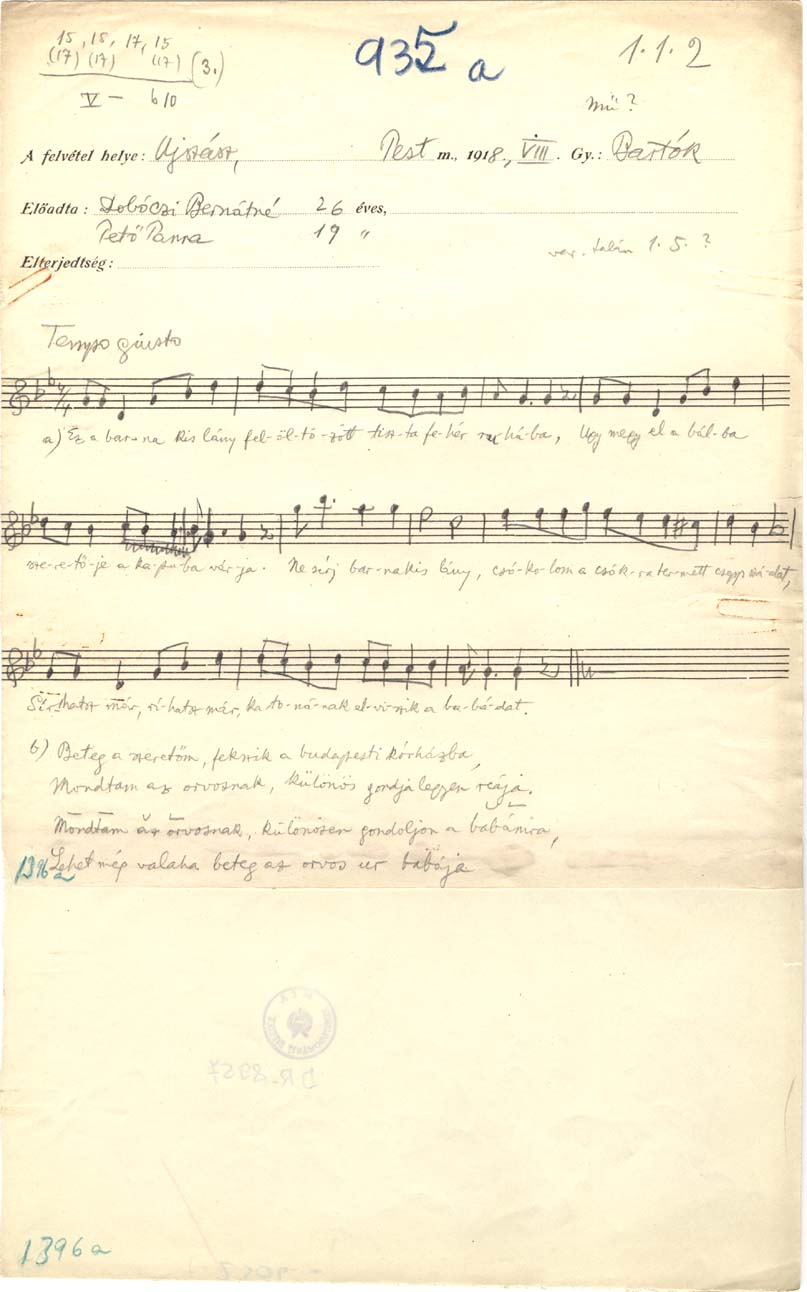 15, 15, 17, 15
(17) (17) (17) (3.)
V – b10
935 a
1.1.2
mű?
A felvétel helye: Ujszász, Pest m., 1918., VIII. Gy.: Bartók
Előadta: Dobóczi Bernátné 26 éves,
Pető Panna 19 "
var. talán 1.5.?
Elterjedtség:
Tempo giusto
a) Ez a bar-na kis lány fel-öl-tö-zött tisz-ta fe-hér ru-há-ba, Ugy megy el a bál-ba
sze-re-tő-je a ka-pu-ba vár-ja. Ne sírj bar-na kis lány, csó-ko-lom a csók-ra ter-mett szád-dat,
Sírhatsz már, rí-hatsz már, ka-to-ná-nak el-vi-szik a ba-bá-dat.
b) Beteg a szeretőm, fekszik a budapesti kórházba,
Mondtam az orvosnak, különös gondja legyen reája.
Mondtam az orvosnak, különösen gondoljon a babámra,
Lehet még valaha beteg az orvos ur babája
1396a
DR-8957
1396a